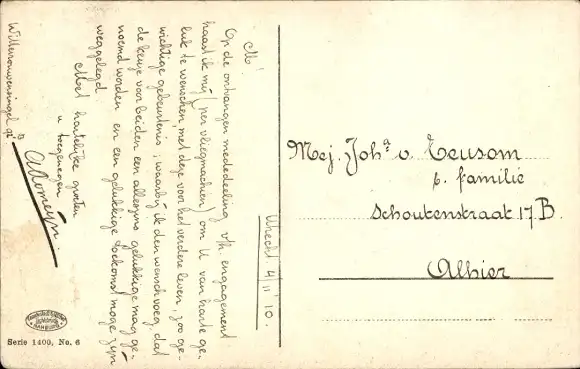 M!
Op de ontvangen mededeeling v/h. engagement
haast ik mij (per vliegmachien) om U van harte ge-
luk te wenschen, met deze voor het verder leven, zoo ge-
wichtige gebeurtenis, waarbij ik den wensch voeg, dat
de keuze voor beiden een alleszins gelukkige mag ge-
noemd worden en een gelukkige toekomst moge zijn
weggelegd
Met hartelijke groeten
u toegenegen
A. Romeijn.
Willemonwensingel
Utrecht 4/11 '10.
Mej. Joha. v. Teusom
p. familie
Schoutenstraat 17B.
Alhier
Serie 1400, No. 6